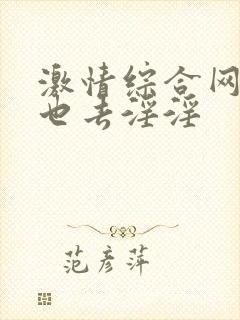 激情综合网
也去淫淫
范彦萍